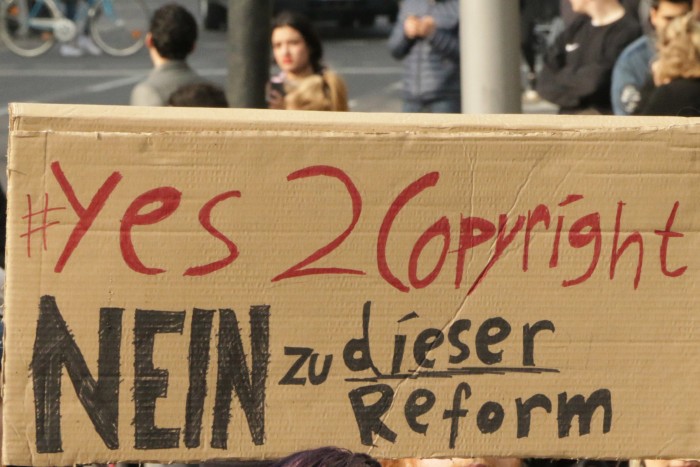 #Yes 2 Copyright
NEIN zu dieser
Reform